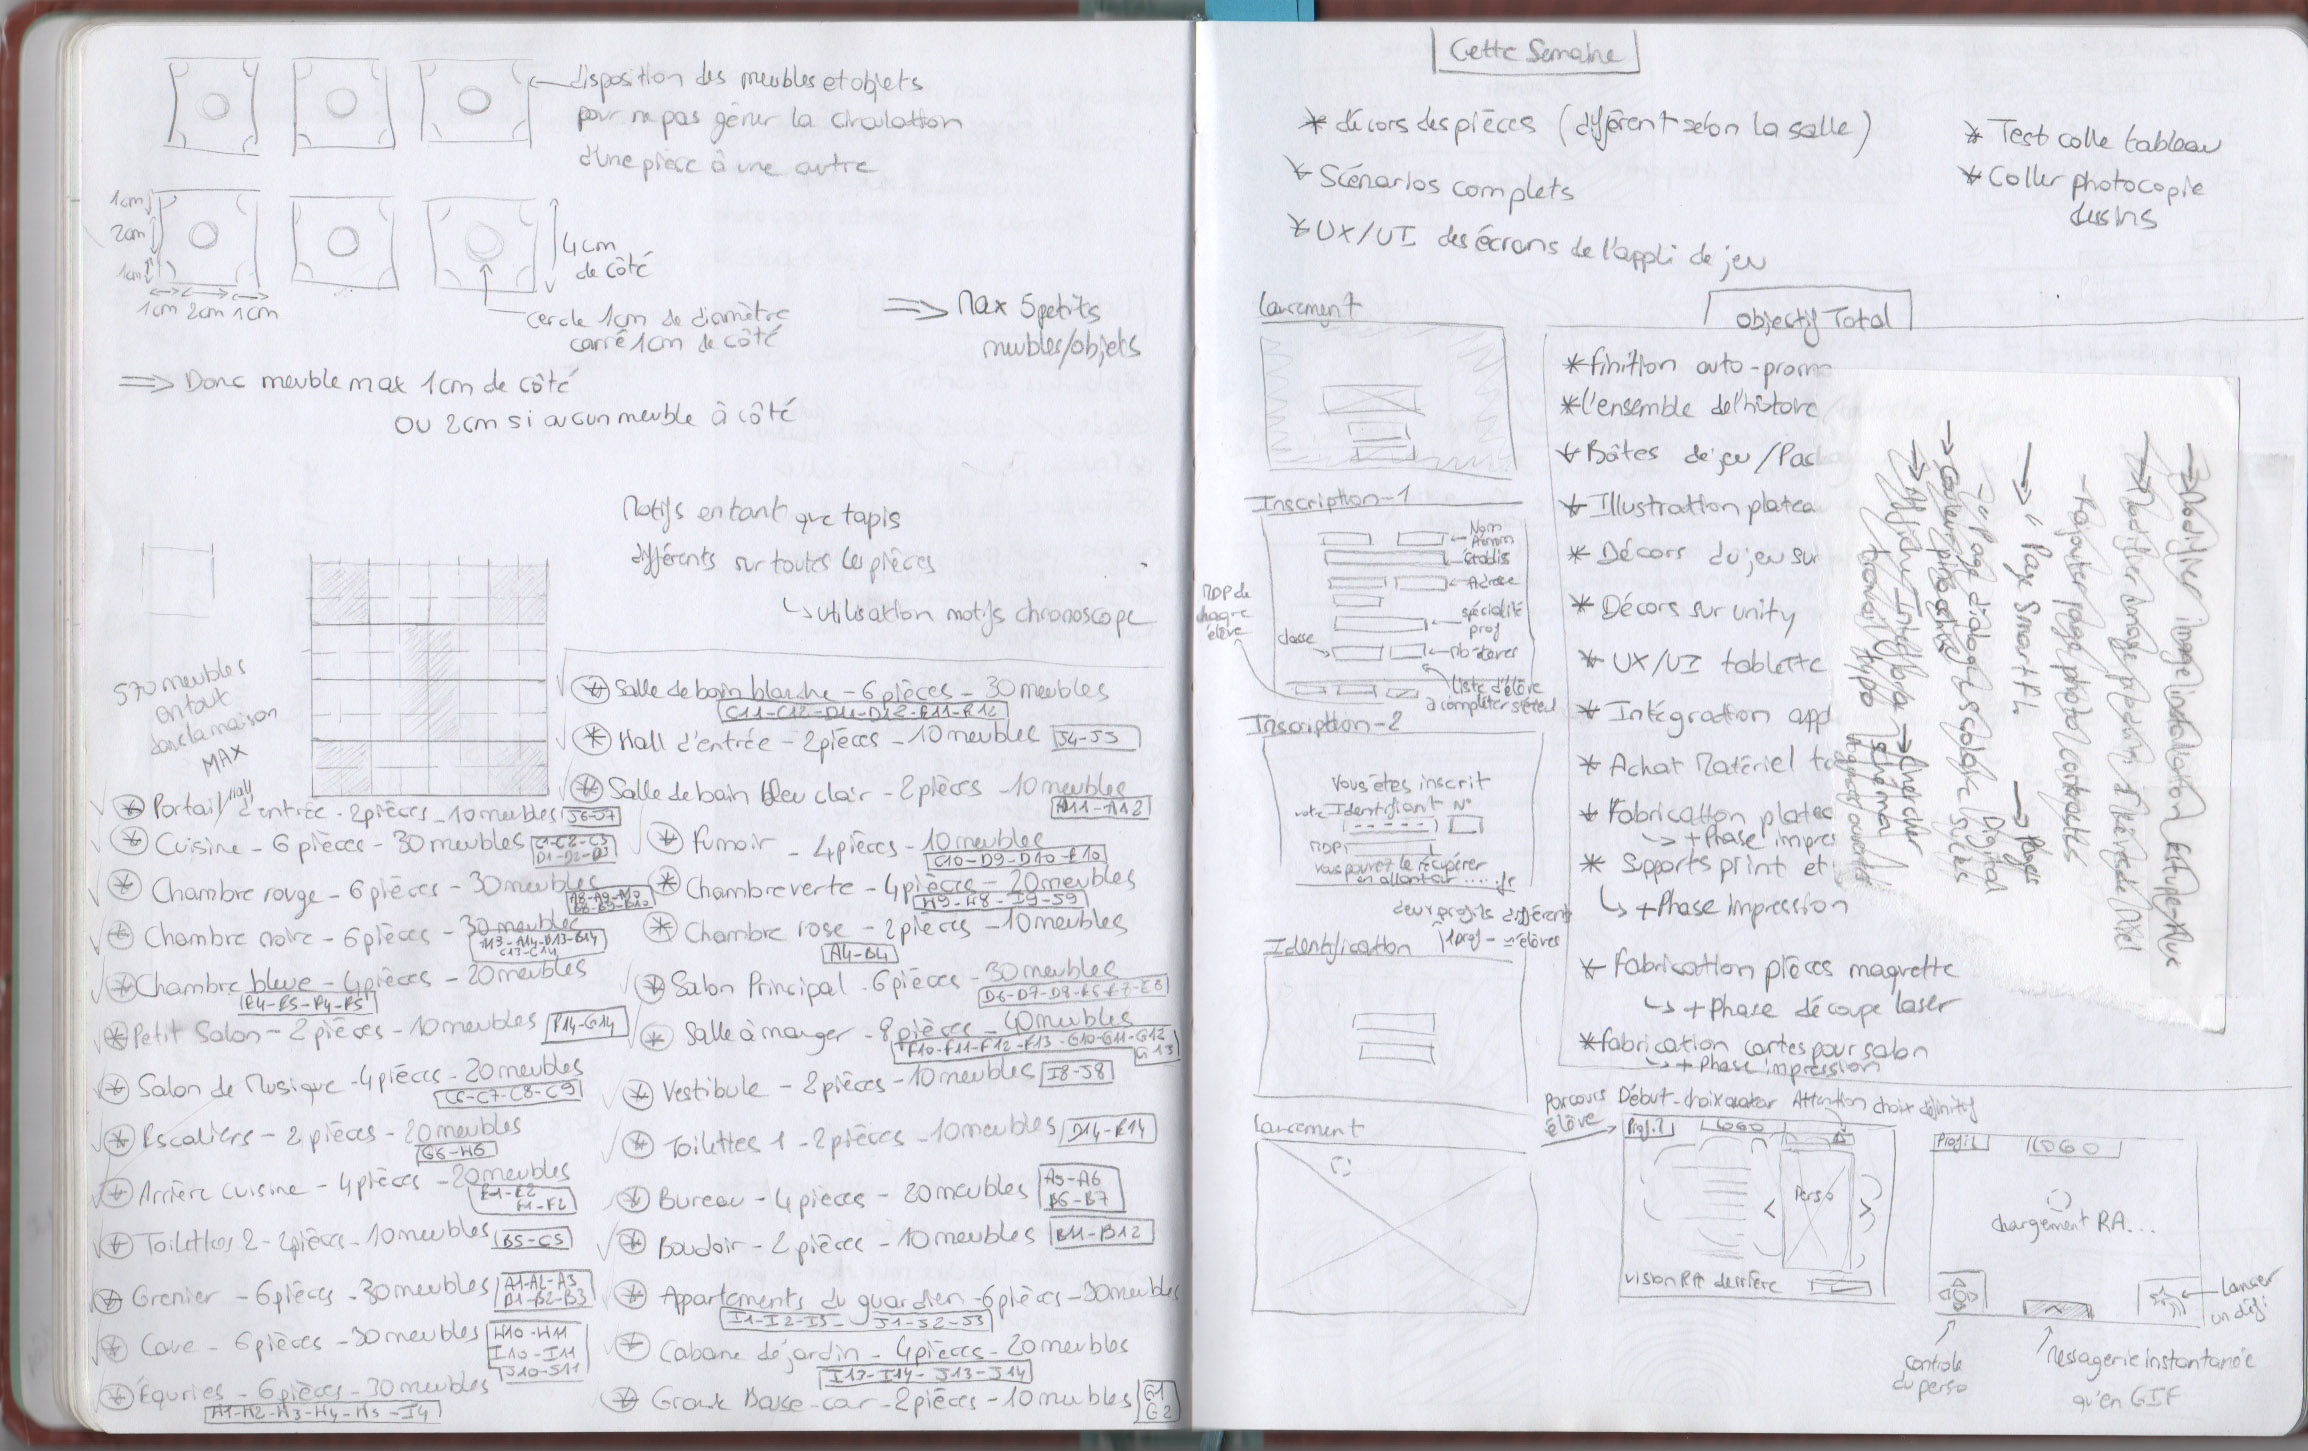 disposition des meubles et objets
pour ne pas gêner la circulation
d'une pièce à une autre
1cm
2cm
1cm
1cm 2cm 1cm
4cm
de côté
cercle 1cm de diamètre
carré 1cm de côté
=> Max 5 petits
meubles/objets
=> Donc meuble max 1cm de côté
ou 2cm si aucun meuble à côté
Motifs en tant que tapis
différents sur toutes les pièces
↳ utilisation motifs chronoscope
570 meubles
en tout
dans la maison
MAX
* Portail/hall d'entrée - 2 pièces - 10 meubles J6-J7
* Cuisine - 6 pièces - 30 meubles C1-C2-C3
D1-D2-D3
* Chambre rouge - 6 pièces - 30 meubles
A8-A9-A10
B8-B9-B10
* Chambre noire - 6 pièces - 30 meubles
A13-A14-B13-B14
C13-C14
* Chambre bleue - 4 pièces - 20 meubles
E4-E5-F4-F5
* Petit Salon - 2 pièces - 10 meubles F14-G14
* Salon de Musique - 4 pièces - 20 meubles
C6-C7-C8-C9
* Escaliers - 2 pièces - 20 meubles
G6-H6
* Arrière cuisine - 4 pièces - 20 meubles
E1-E2
F1-F2
* Toilettes 2 - 2 pièces - 10 meubles B5-C5
* Grenier - 6 pièces - 30 meubles A1-A2-A3
B1-B2-B3
* Cave - 6 pièces - 30 meubles H10-H11
I10-I11
J10-J11
* Équries - 6 pièces - 30 meubles
H1-H2-H3-H4-H5-I4
* Salle de bain blanche - 6 pièces - 30 meubles
C11-C12-D11-D12-E11-E12
* Hall d'entrée - 2 pièces - 10 meubles J4-J5
* Salle de bain bleu clair - 2 pièces - 10 meubles
A11-A12
* Fumoir - 4 pièces - 10 meubles
C10-D9-D10-E10
* Chambre verte - 4 pièces - 20 meubles
H9-H8-I9-J9
* Chambre rose - 2 pièces - 10 meubles
A4-B4
* Salon Principal - 6 pièces - 30 meubles
D6-D7-D8-E6-E7-E8
* Salle à manger - 8 pièces - 40 meubles
F10-F11-F12-F13-G10-G11-G12
G13
* Vestibule - 2 pièces - 10 meubles I8-J8
* Toilettes 1 - 2 pièces - 10 meubles D14-E14
* Bureau - 4 pièces - 20 meubles A5-A6
B6-B7
* Boudoir - 2 pièces - 10 meubles B11-B12
* Appartements du guardien - 6 pièces - 30 meubles
I1-I2-I3- J1-J2-J3
* Cabane de jardin - 4 pièces - 20 meubles
I13-I14-J13-J14
* Grande Basse-cour - 2 pièces - 10 meubles G1
G2
Cette Semaine
* décors des pièces (différent selon la salle)
* Scénarios complets
* UX/UI des écrans de l'appli de jeu
* Test colle tableau
* Coller photocopie
dessins
Lancement
Inscription-1
Nom
Prénom
Établis
Adresse
spécialité
prof
classe
Nb élèves
Liste d'élève
à compléter
MDP de
chaque
élève
Inscription-2
Vous êtes inscrit
votre Identifiant N°
MDP:
Vous pouvez le récupérer
en allant sur .....fr
deux profils différents
1 prof - élèves
Identification
Lancement
Objectif Total
* finition auto-promo
* l'ensemble de l'histoire
* Boîtes de jeu / Pac
* Illustration platea
* Décors du jeu sur
* Décors sur unity
* UX/UI tablette
* Intégration app
* Achat Matériel
* Fabrication platea
↳ + Phase impres
* Supports print et
↳ + Phase impression
* Fabrication pièces maquette
↳ + Phase découpe laser
* fabrication cartes pour salon
↳ + Phase impression
→ Modifier image installation
→ Modifier image
- Rajouter page photo contacts
→ Page Smart
→ Pages
→ Page d'dialogue escalade
→ Chercher
schéma
travail typo
Parcours
élève
Début - choix avatar Attention choix définitif
Profil
LOGO
Perso
< >
vision RA derrière
Profil
LOGO
chargement RA...
Lancer
un défi
contrôle
du perso
Messagerie instantanée
qu'en GIF